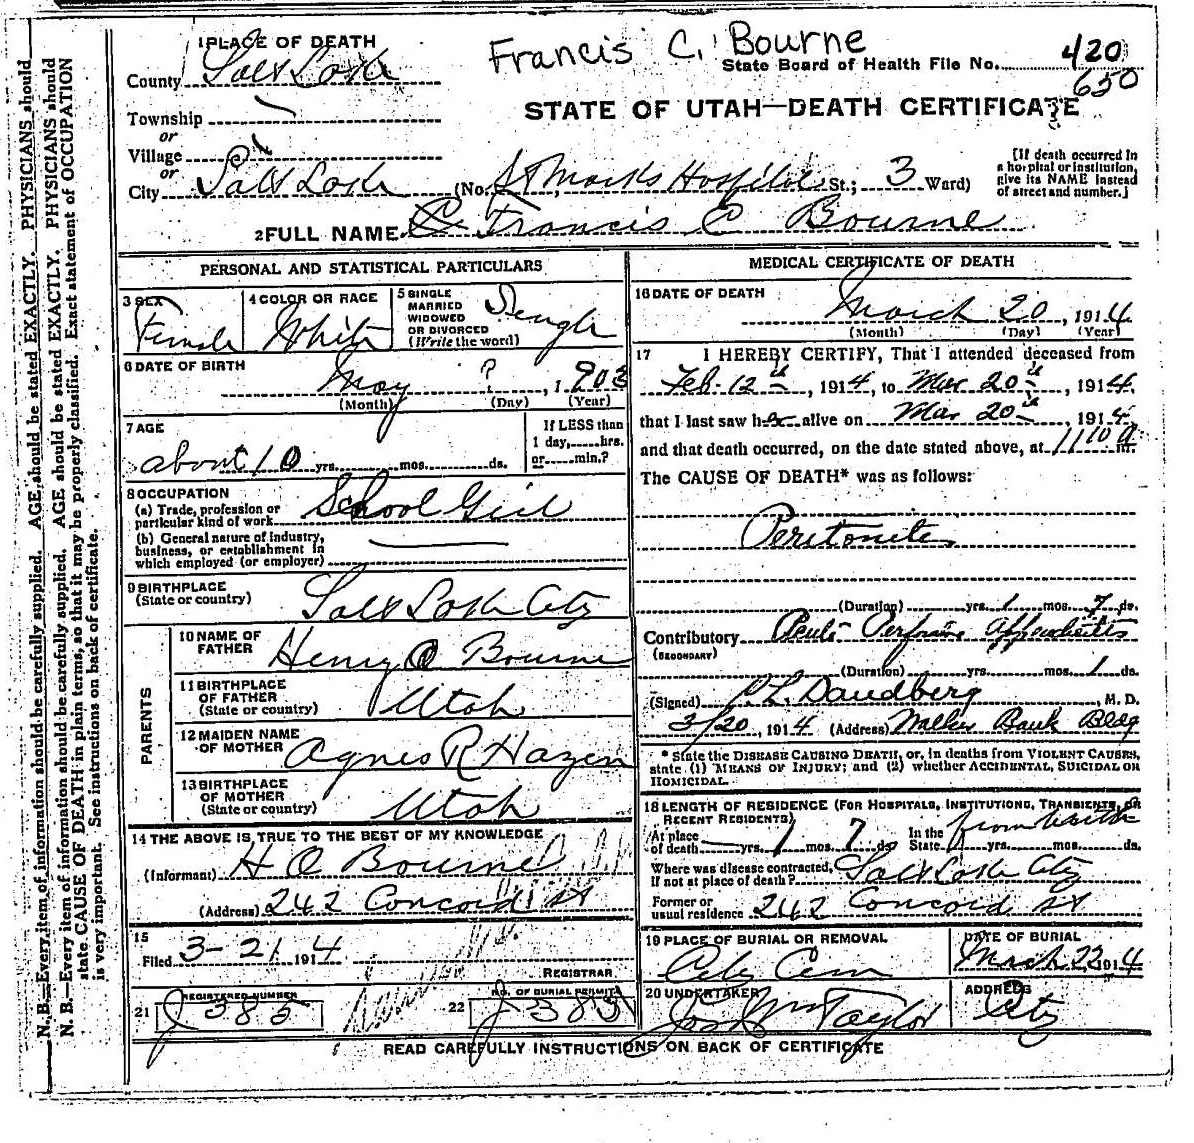 Francis C. Bourne
1 PLACE OF DEATH
County Salt Lake
State Board of Health File No. 420
650
STATE OF UTAH—DEATH CERTIFICATE
Township
or
Village
or
City Salt Lake (No. St Marks Hospital St.; 3 Ward)
[If death occurred in a hospital or institution, give its NAME instead of street and number.]
2 FULL NAME Francis C Bourne
PERSONAL AND STATISTICAL PARTICULARS
3 SEX Female
4 COLOR OR RACE White
5 SINGLE MARRIED WIDOWED OR DIVORCED (Write the word) Single
6 DATE OF BIRTH May ? 1903
(Month) (Day) (Year)
7 AGE about 10 yrs. mos. ds.
If LESS than 1 day, hrs. or min.?
8 OCCUPATION
(a) Trade, profession or particular kind of work School Girl
(b) General nature of industry, business, or establishment in which employed (or employer)
9 BIRTHPLACE (State or country) Salt Lake City
PARENTS
10 NAME OF FATHER Henry O Bourne
11 BIRTHPLACE OF FATHER (State or country) Utah
12 MAIDEN NAME OF MOTHER Agnes R Hazen
13 BIRTHPLACE OF MOTHER (State or country) Utah
14 THE ABOVE IS TRUE TO THE BEST OF MY KNOWLEDGE
(Informant) H O Bourne
(Address) 242 Concord St
15
Filed 3-21 1914
REGISTRAR
21 REGISTERED NUMBER J 385
22 NO. OF BURIAL PERMIT J 385
MEDICAL CERTIFICATE OF DEATH
16 DATE OF DEATH
March 20, 1914
(Month) (Day) (Year)
17 I HEREBY CERTIFY, That I attended deceased from
Feb-12th, 1914, to Mar 20th, 1914.
that I last saw her alive on Mar 20th, 1914
and that death occurred, on the date stated above, at 1110 a m.
The CAUSE OF DEATH* was as follows:
Peritonitis
(Duration) yrs. 1 mos. 7 ds.
Contributory (SECONDARY) Appendicitis
(Duration) yrs. mos. 1 ds.
(Signed) Daudberg, M. D.
3/20, 1914 (Address) Walker Bank Bldg
* State the DISEASE CAUSING DEATH, or, in deaths from VIOLENT CAUSES, state (1) MEANS OF INJURY; and (2) whether ACCIDENTAL, SUICIDAL OR HOMICIDAL.
18 LENGTH OF RESIDENCE (FOR HOSPITALS, INSTITUTIONS, TRANSIENTS, OR RECENT RESIDENTS)
At place of death yrs. 1 mos. 7 ds. In the State yrs. mos. ds.
from birth
Where was disease contracted, If not at place of death? Salt Lake City
Former or usual residence 242 Concord St
19 PLACE OF BURIAL OR REMOVAL City Cem
DATE OF BURIAL March 22 1914
20 UNDERTAKER Jos Wm Taylor
ADDRESS City
READ CAREFULLY INSTRUCTIONS ON BACK OF CERTIFICATE
N. B.—Every item of information should be carefully supplied. AGE should be stated EXACTLY. PHYSICIANS should
N. B.—Every item of information should be carefully supplied. AGE should be stated EXACTLY. PHYSICIANS should
state CAUSE OF DEATH in plain terms, so that it may be properly classified. Exact statement of OCCUPATION
is very important. See instructions on back of certificate.